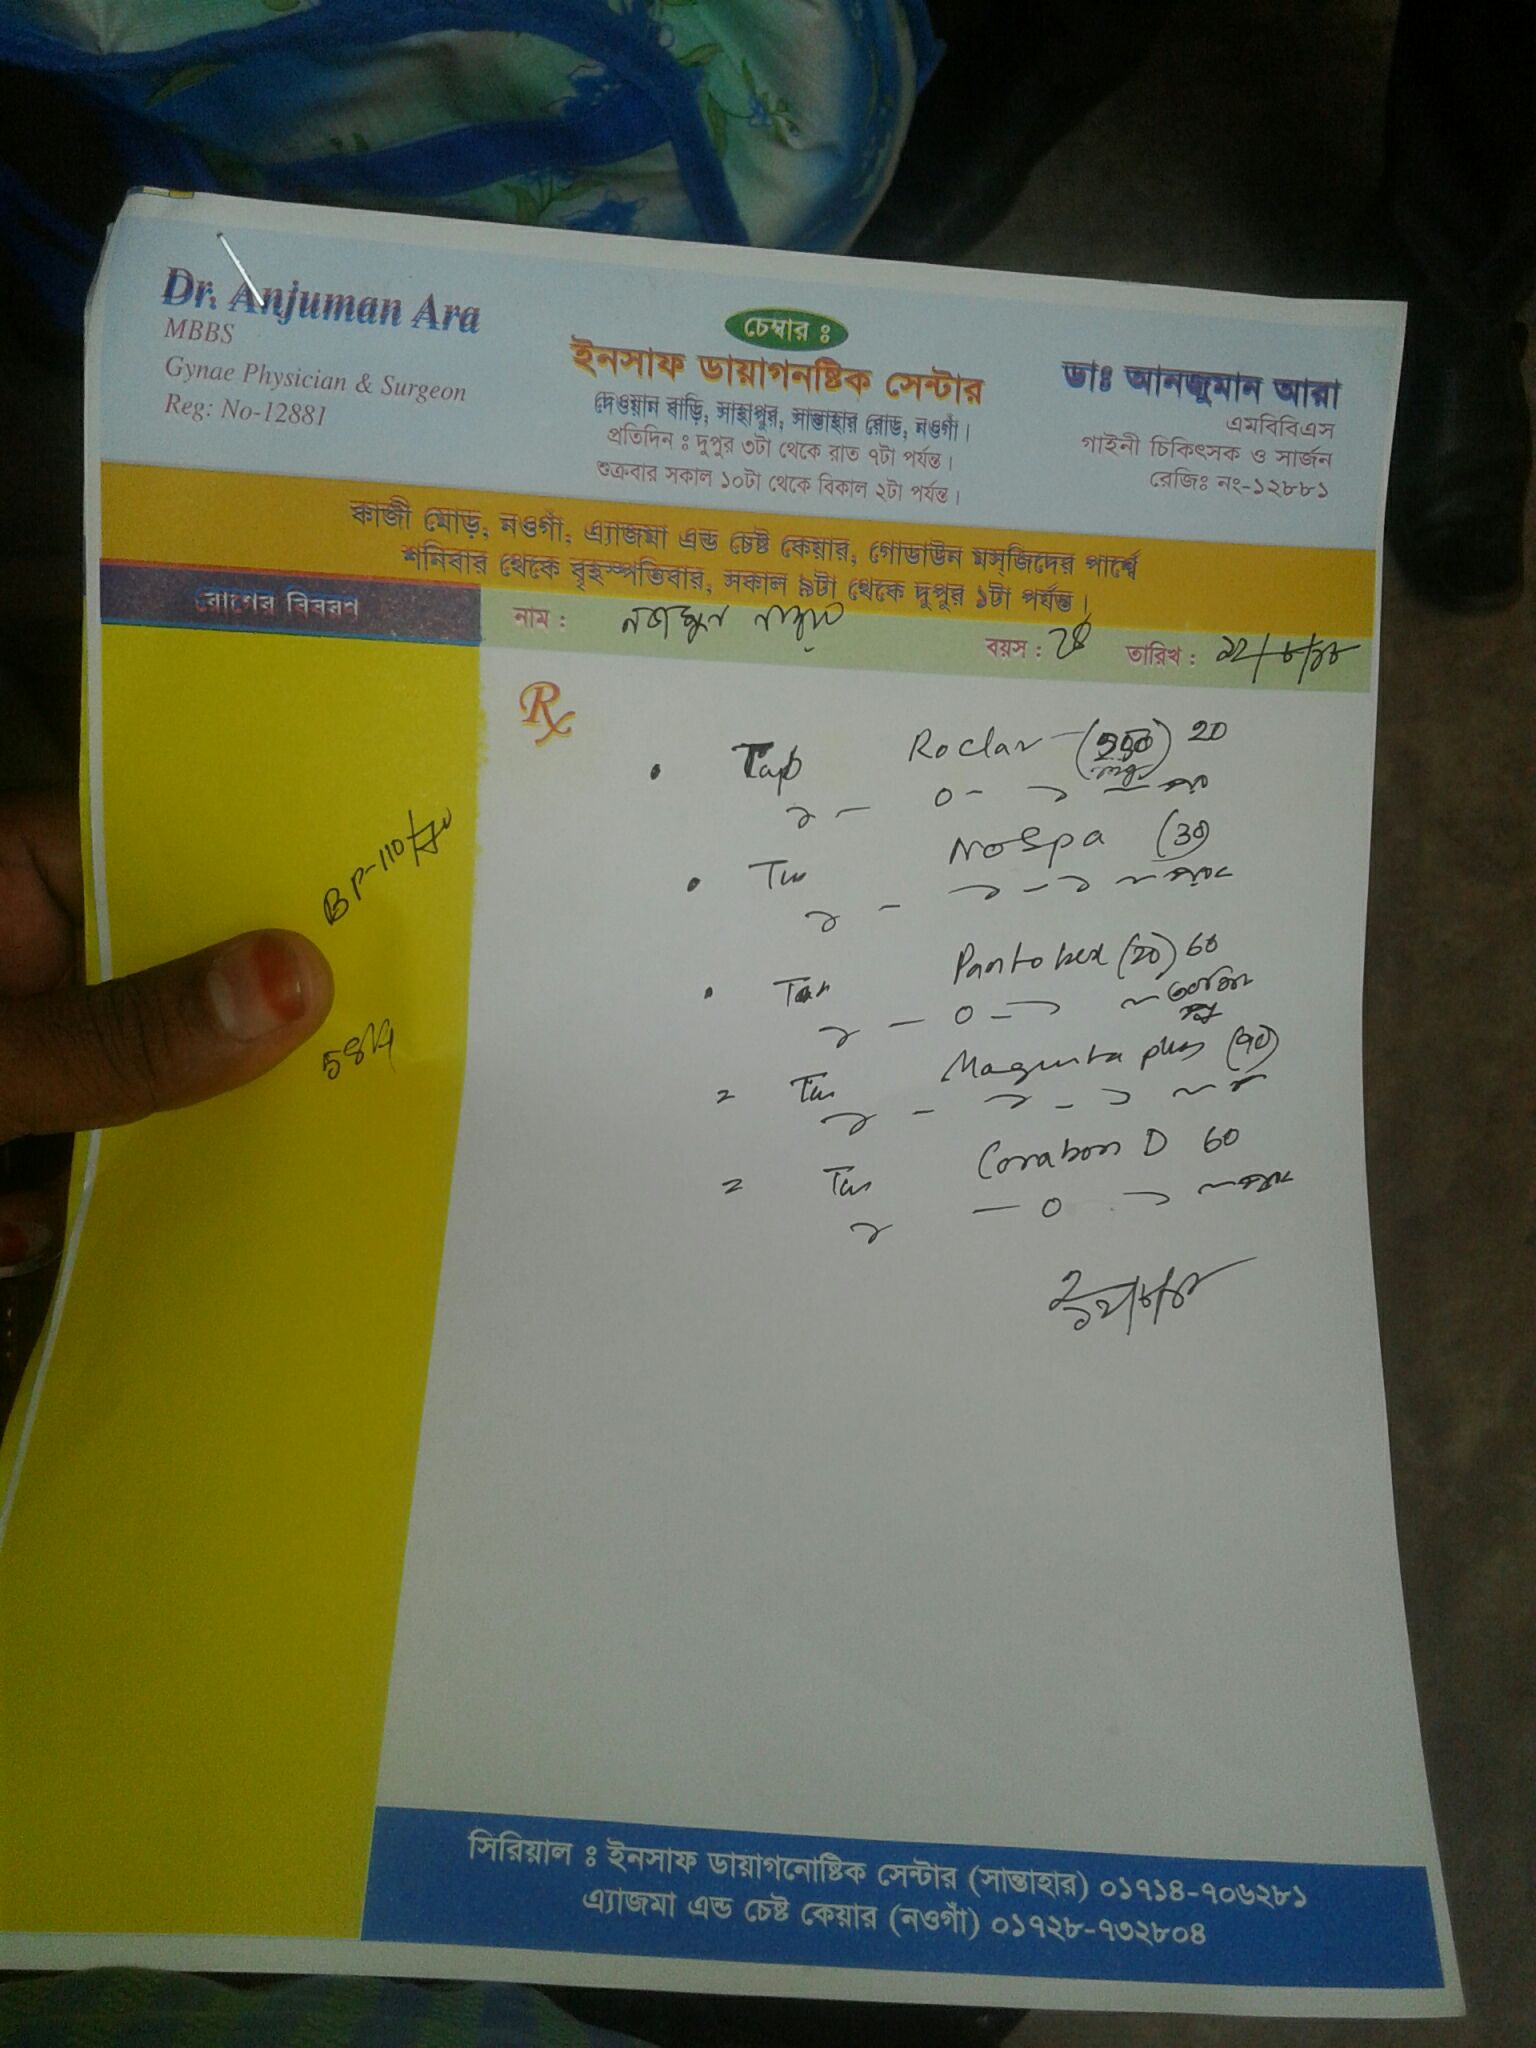 Dr. Anjuman Ara
MBBS
Gynae Physician & Surgeon
Reg: No-12881
চেম্বার ঃ
ইনসাফ ডায়াগনষ্টিক সেন্টার
দেওয়ান বাড়ি, সাহাপুর, সান্তাহার রোড, নওগাঁ।
প্রতিদিন ঃ দুপুর ৩টা থেকে রাত ৭টা পর্যন্ত।
শুক্রবার সকাল ১০টা থেকে বিকাল ২টা পর্যন্ত।
ডাঃ আনজুমান আরা
এমবিবিএস
গাইনী চিকিৎসক ও সার্জন
রেজিঃ নং-১২৮৮১
কাজী মোড়, নওগাঁ, এ্যাজমা এন্ড চেষ্ট কেয়ার, গোডাউন মস্‌জিদের পার্শ্বে
শনিবার থেকে বৃহস্পতিবার, সকাল ৯টা থেকে দুপুর ১টা পর্যন্ত।
রোগের বিবরণ
নাম : বয়স : তারিখ : ১২/৮/১৮
Rx
Tab Roclar 20
১ - ০ - ১
Nospa (30)
১ - ১ - ১
(20) 60
১ - ০ - ১
plus
১ - ১ - ১
D 60
১ - ০ ১
BP-110/70
১২/৮/১৮
সিরিয়াল ঃ ইনসাফ ডায়াগনোষ্টিক সেন্টার (সান্তাহার) ০১৭১৪-৭০৬২৮১
এ্যাজমা এন্ড চেষ্ট কেয়ার (নওগাঁ) ০১৭২৮-৭৩২৮০৪